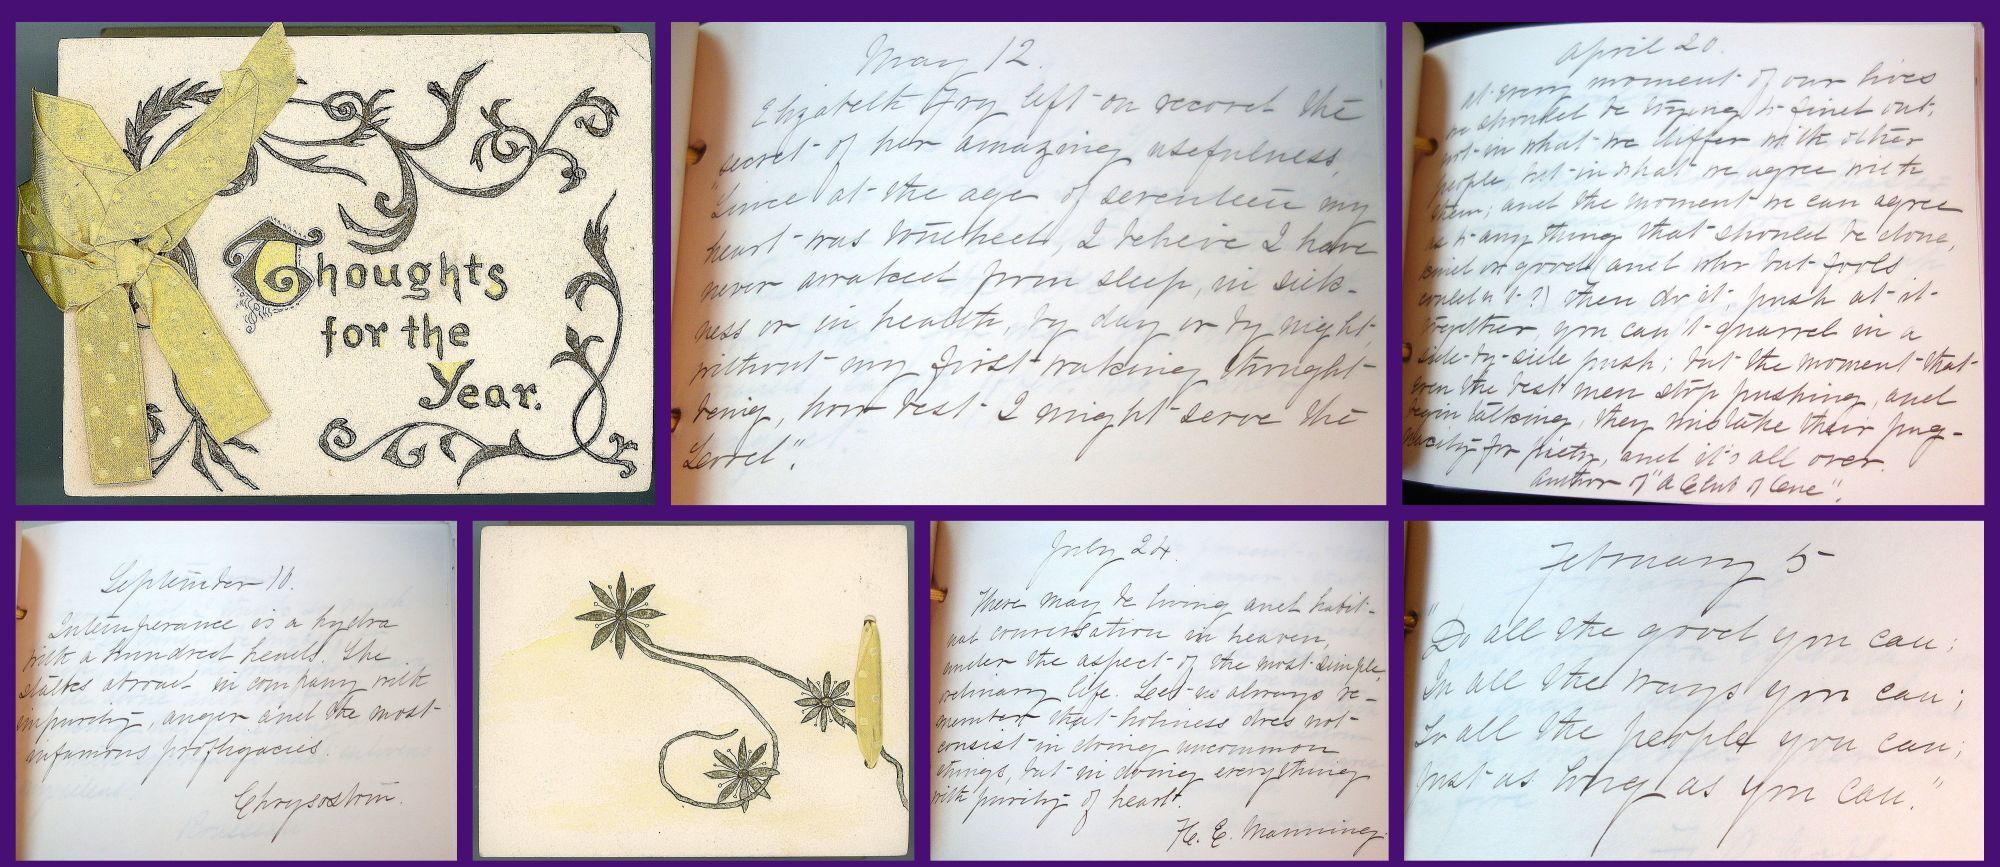 Thoughts
for the
Year.
May 12.
Elizabeth Fry left on record the
secret of her amazing usefulness,
"Since at the age of seventeen my
heart was touched, I believe I have
never awaked from sleep, in sick-
ness or in health, by day or by night,
without my first waking thought
being, how best I might serve the
Lord".
April 20.
At every moment of our lives
we should be trying to find out,
not in what we differ with other
people, but in what we agree with
them; and the moment we can agree
as to anything that should be done,
kind or good, and who but fools
couldn't?) then do it; push at it
together you can't quarrel in a
side-by-side push; but the moment that
even the best men stop pushing, and
begin talking, they mistake their pug-
nacity for piety, and it's all over.
Author of "A Club of One".
September 10.
Intemperance is a hydra
with a hundred heads. She
stalks abroad in company with
impurity, anger and the most
infamous profligacies.
Chrysostom.
July 24.
There may be living and habit-
ual conversation in heaven,
under the aspect of the most simple,
ordinary life. Let us always re-
member that holiness does not
consist in doing uncommon
things, but in doing everything
with purity of heart.
H. E. Manning.
February 5
"Do all the good you can;
In all the ways you can;
To all the people you can;
Just as long as you can."